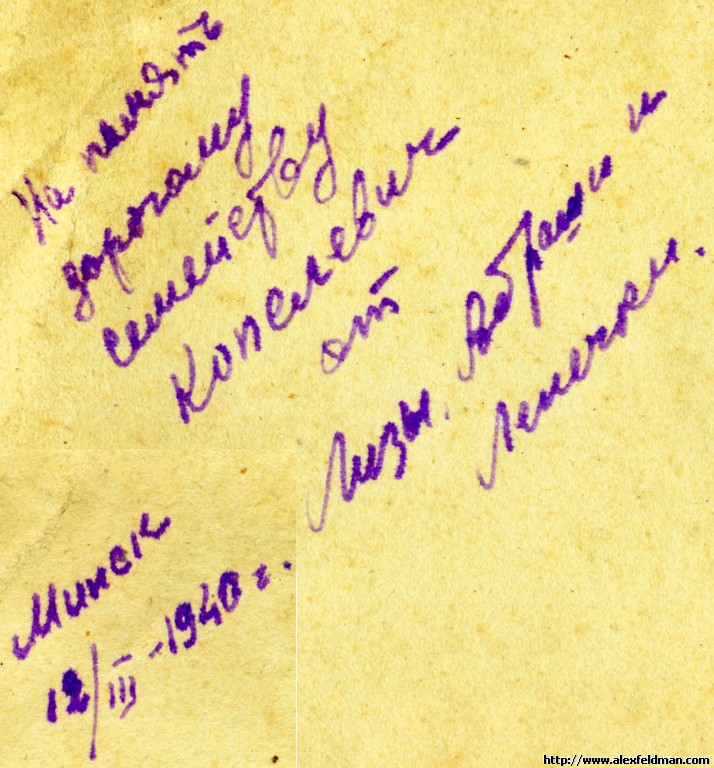 На память
дорогому
семейству
Копелевич
от
Лизы, Абраши и
Ленечки.
Минск
12/III-1940 г.
http://www.alexfeldman.com